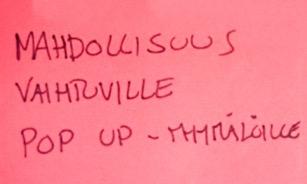 MAHDOLLISUUS
VAIHTUVILLE
POP UP - MYYMÄLÖILLE